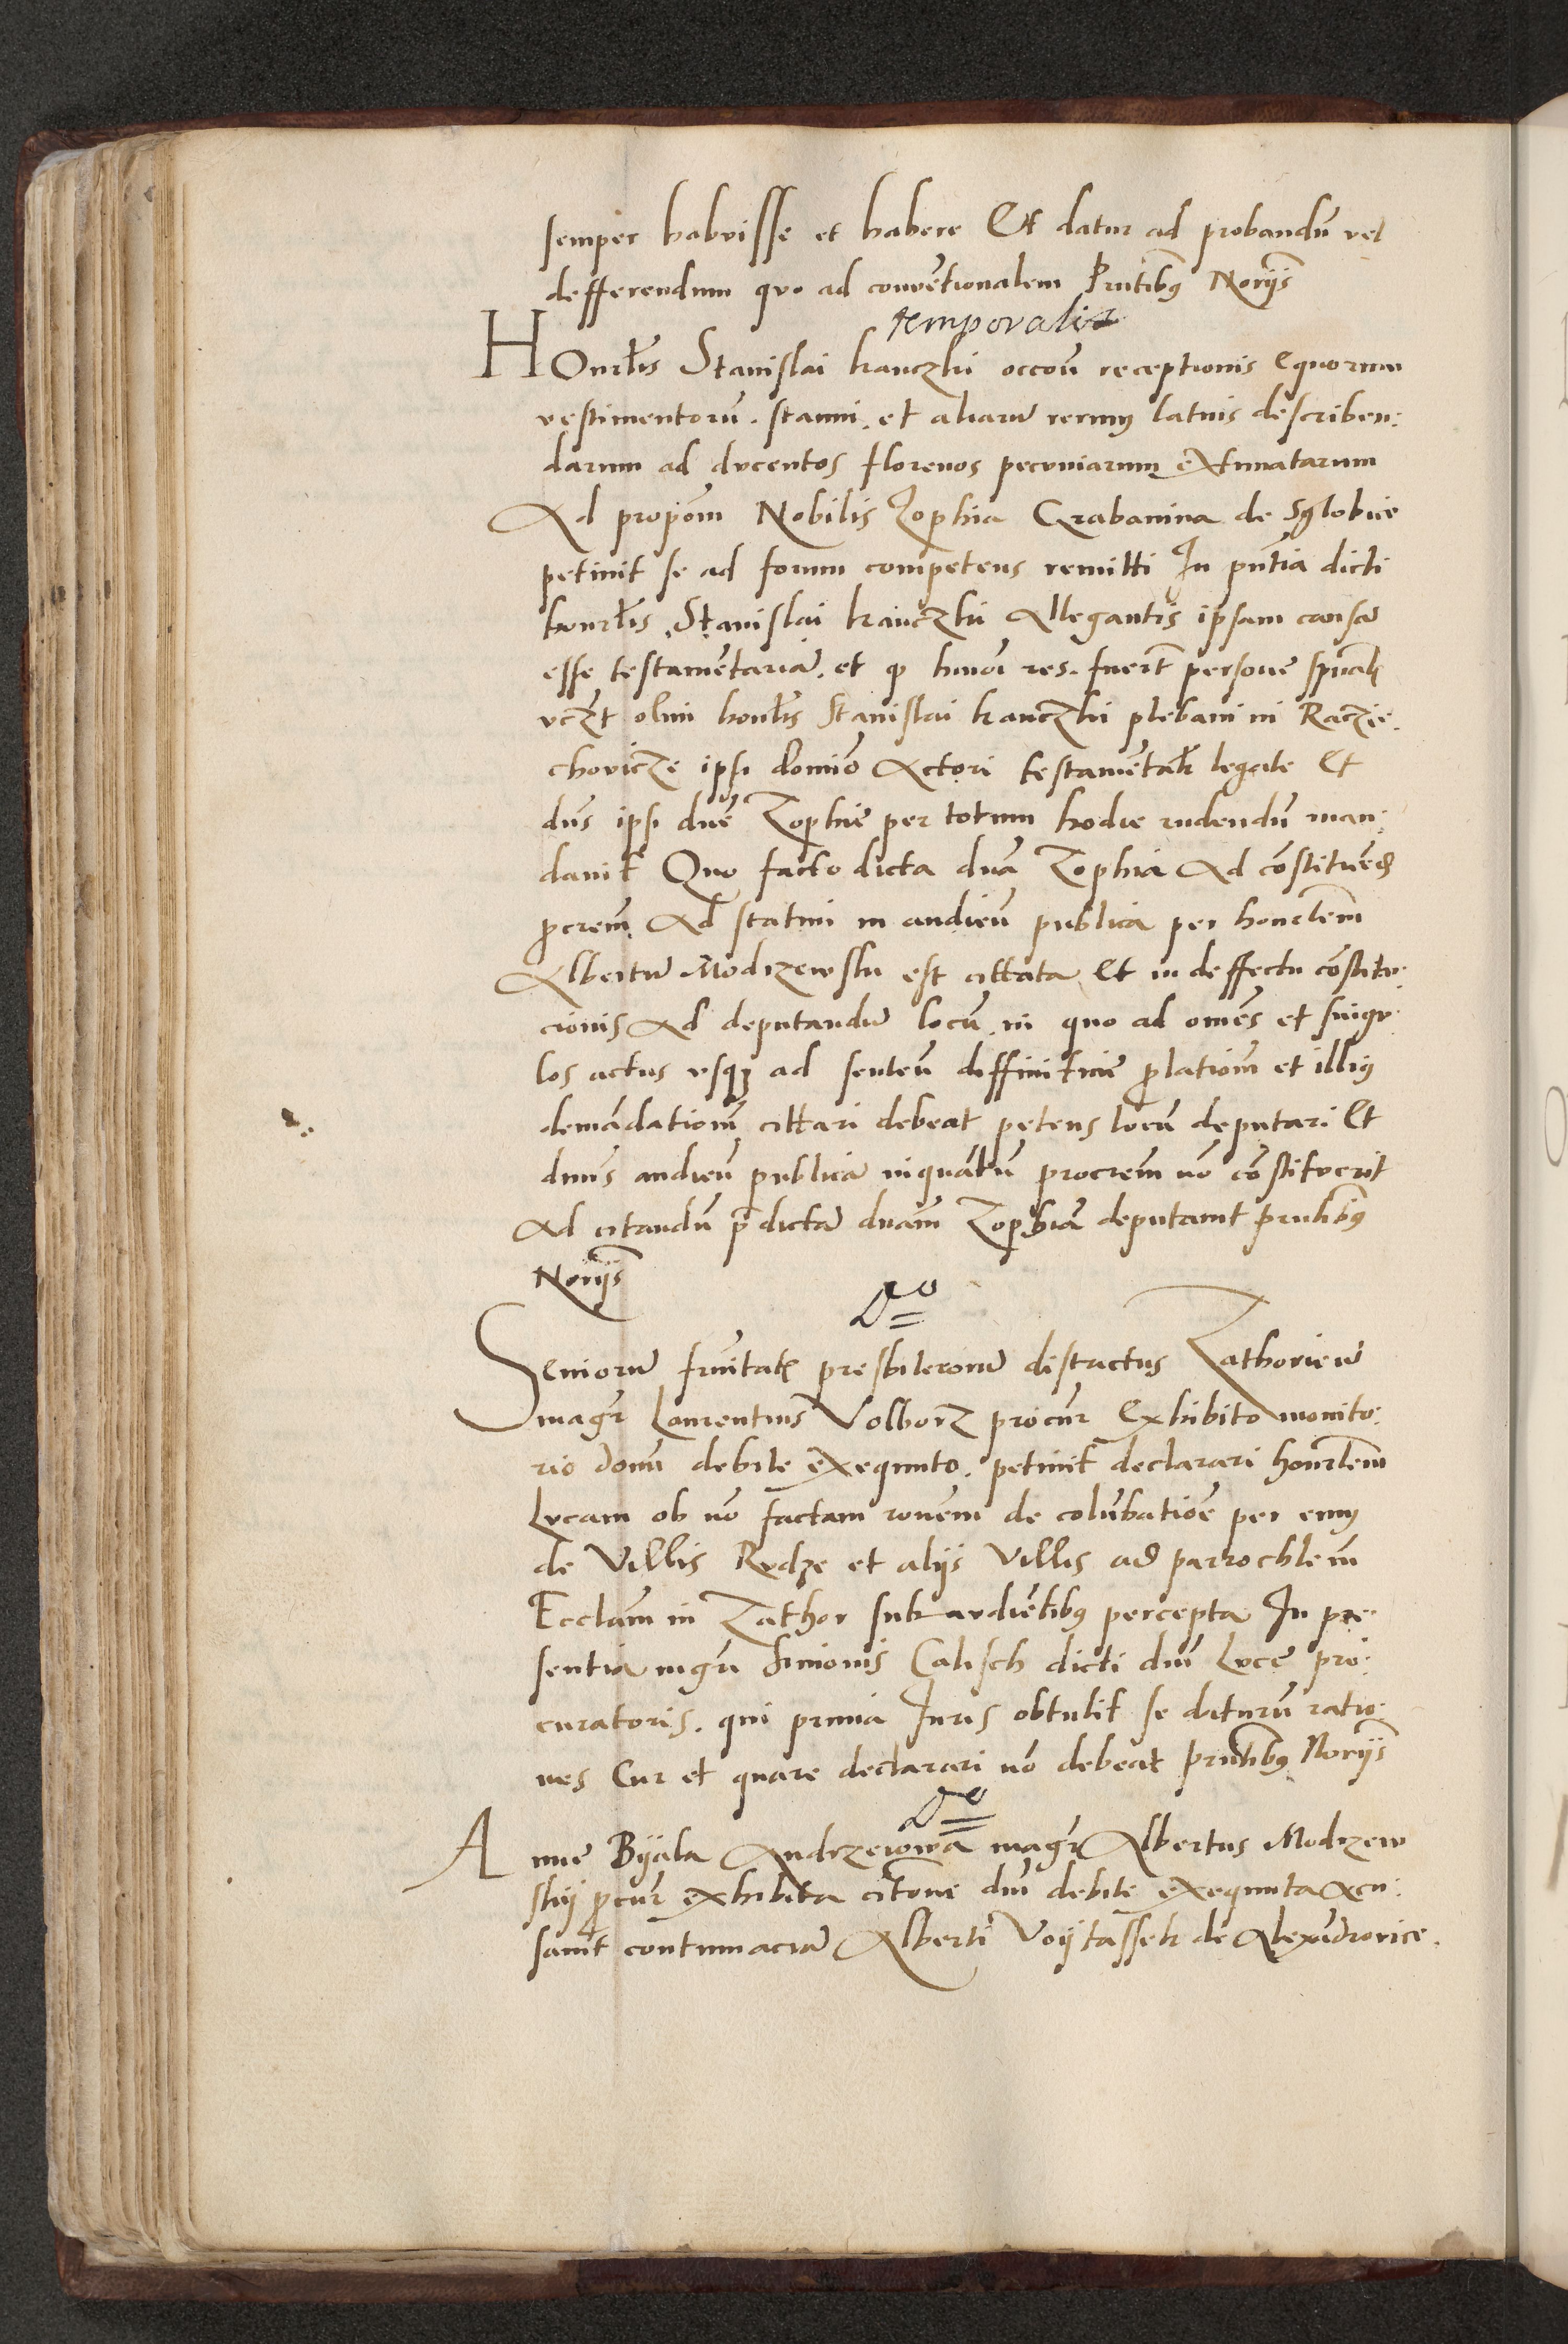 semper habuisse et habere Et datur ad probandũ vel
defferendum quo ad conuẽtionalem Pñtibus Norijs
temporalia
HOnrłis Stanislai kanczki occoñ receptionis equorum
vestimentorũ. stanni. et aliarũ rerum latius describen:
darum ad ducentos florenos pecuniarum extimatarum
Ad propoñm Nobilis Zophia Grabanina de Sglobice
petiuit se ad forum competens remitti In pñtia dicti
honrłis Stanislai kanczki Allegantis ipsam causã
esse testamẽtariã. et q hmõi res. fuerũt persone spũal
vczt olim honrłis Stanislai kanczki plebani in Raczie:
chovicze ipsi domiõ Actori testamẽtał legate Et
dñs ipsi dnẽ Zophie per totum hodie videndũ man:
dauit Quo facto dicta dnã Zophia Ad cõstituẽd
procrem Ad statim in audieñ publica per honrłem
Albertũ Modrzewski est cittata Et in deffectu cõstitu:
cionis Ad deputandũ locũ in quo ad omẽs et singu:
los actus vsq ad senteñ diffinitiuẽ prolatioñm et illius
demãdatioñm cittari debeat petens locũ deputari Et
dnus audieñ publicã inquãtũ procrem nõ cõstituerit
Ad citandũ pdictã dnãm Zophiã deputauit pñtibus
Norijs
Do
Seniorũ fruitatis presbiterorum districtus Zathoriẽ
magr Laurentius Volborz procur Exhibito monito:
rio domi debite exequuto. petiuit declarari honrłem
Lucam ob nõ factam ronem de colũbatiõe per eum
de Villis Rudze et alijs Villis ad parrochłem
Ecclãm in Zathor subaudiẽtibus percepta In pre:
sentia mgri Simonis Calisch dicti dni Luce pro:
curatoris. qui primã Juris obtulit se diturũ ratio:
nes Cur et quare declarari nõ debeat pñtibus Norijs
Do
Anne Bijala Andrzeiowa magr Albertus Modrzew
skij procur exhibita citone dni debite exequuta Accu:
sauit contumaciã Alberti Voijtassek de Alexãdrovice.